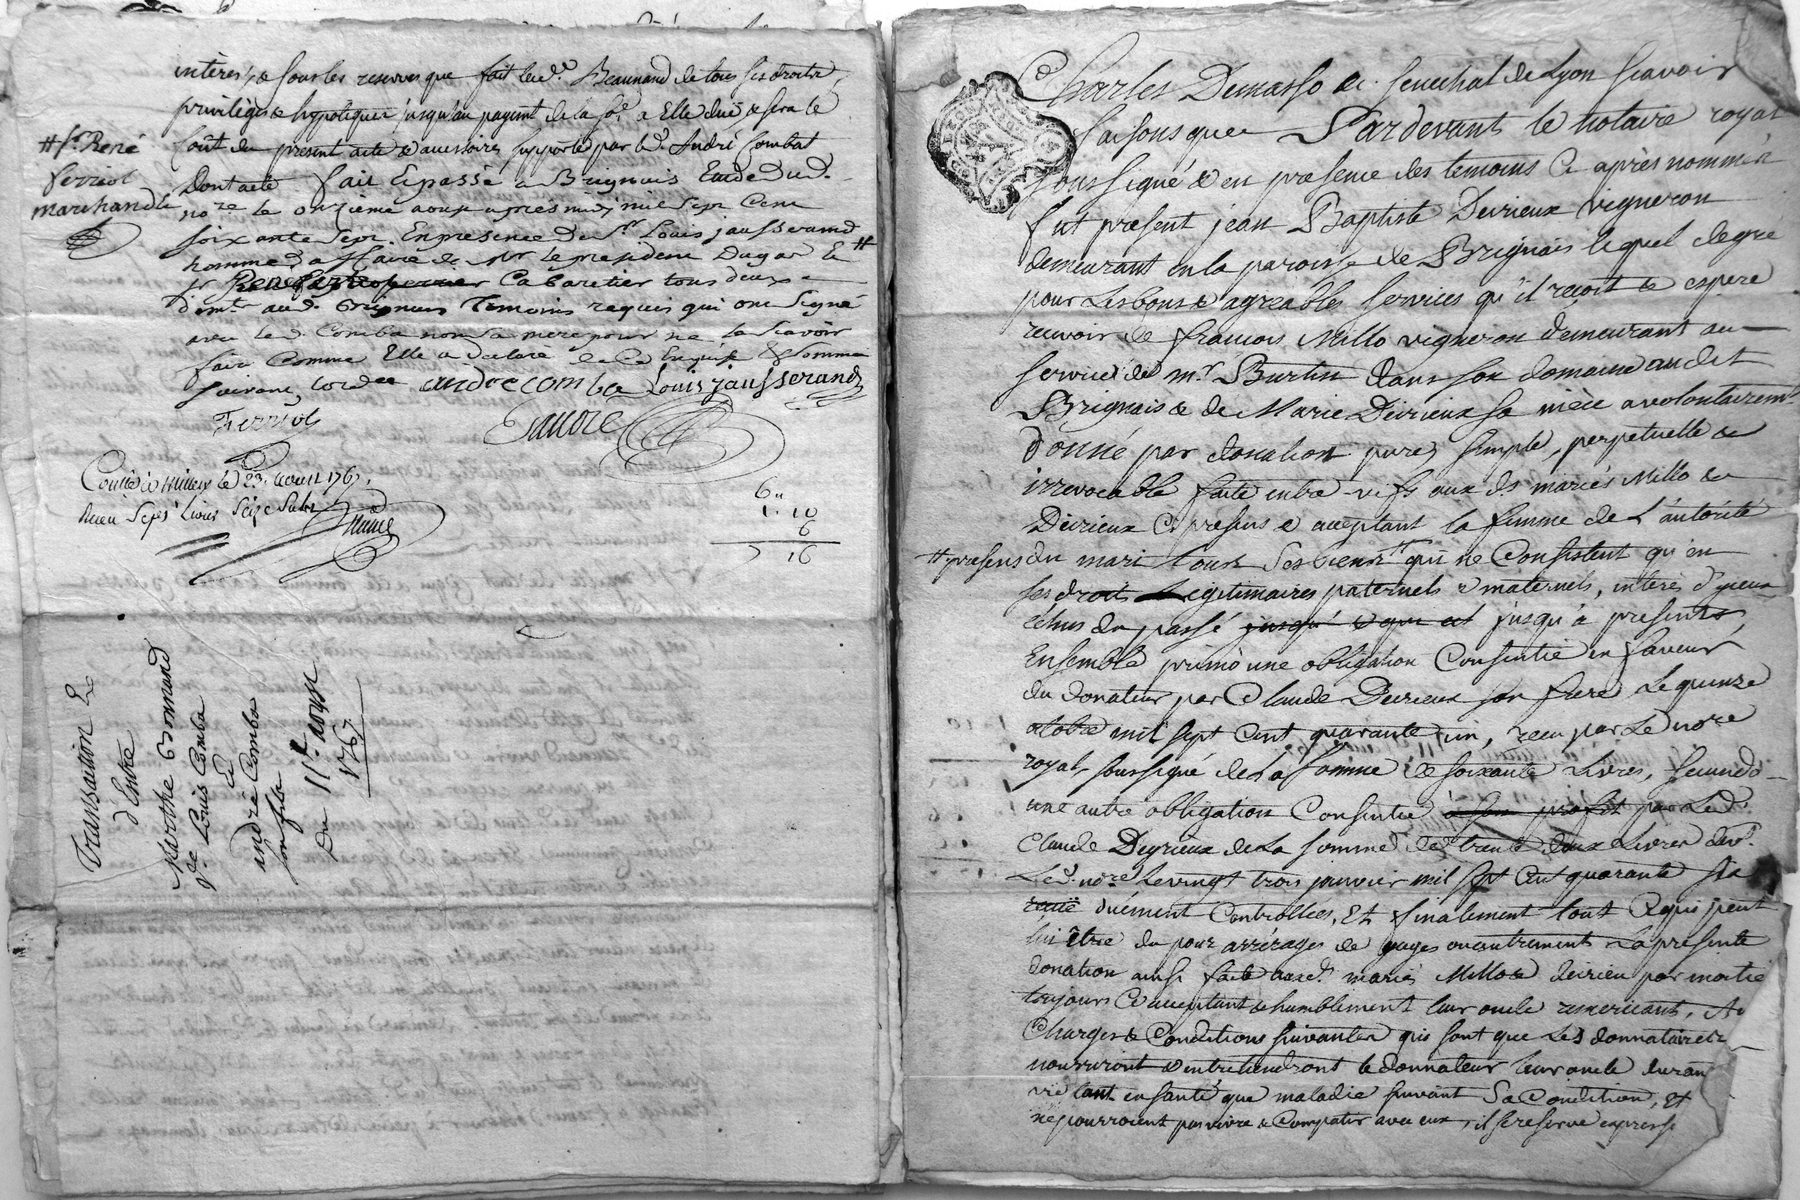 interes, & sous les reserves que fait lad.e Bonnand de tous ses droits
privilèges & hypotèques jusqu'au payem.t de la so.e a Elle due & sera le
coût du present acte & accessoires supporté par led. André Combat
Dont acte fait & passé a Brignais Etude dud.
no.re le onzieme aoust après midy mil sept Cent
soixante sept. En presence de S.r Louis jausserand
homme d'affaire de M.r le president Dugas & #
s.r Cabaretier tous deux
dem.t aud. Brignais Temoins requis qui ont signé
avec led. Comba non sa mere pour ne le scavoir
faire Comme Elle a declaré de ce Enquise & somme
suivant l'ordce andre comba Louis jausserand
Ferriol
# S.r René
ferriol
marchand &
Con.lé à Millery le 23. aoust 1767.
Receu Sept Livres Seize Sols
6 "
1. 10
6
7 16
Transaction
d'Entre
Marthe Bonnand
v.e Louis Comba
Et
andré Comba
son fils
Du 11.e aoust
1767
Charles Demasso &c. senechal de Lyon scavoir
faisons que Pardevant le notaire royal
soussigné & en presence des temoins Cy après nommés
fut present jean Baptiste Devrieux vigneron
demeurant en la paroisse de Brignais lequel de gré
pour les bons & agreables services qu'il reçoit & espere
recevoir de francois Millo vigneron demeurant au
service de m.r Burtin dans son domaine audit
Brignais & de Marie Devrieux sa nièce a volontairem.t
donné par donation pure, simple, perpetuelle &
irrevocable faite entre vifs aux ds mariés Millo &
Devrieux Cy presens & acceptant la femme de L'autorité
du mari tous ses biens # qui ne Consistent qu'en
# presens
ses droits Legitimaires paternels & maternels, interès d'yceux
échus du passé jusqu' & qui est jusqu'à present,
Ensemble primò une obligation Consentie en faveur
du donateur par Claude Devrieux son frere Le quinze
octobre mil sept cent quarante un, receu par Le no.re
royal soussigné de La somme de soixante Livres, secundò
une autre obligation Consentie à son profit par Led.
Claude Devrieux de La somme de trente deux Livres dev.t
Led. no.re Le vingt trois janvier mil sept cent quarante six
receue duement Controllées, Et finalement tout Ce qui peut
lui être du pour arrérages de gages ou autrement La presente
donation ainsi faite auxd. mariés Millo & devrieu par moitié
toujours Cy acceptant & humblement leur oncle remerciant. Au
Charges & Conditions suivantes qui sont que Les donnataires
nourriront & entretiendront le donnateur leur oncle durant
vie tant en santé que maladie suivant Sa Condition, Et
ne pourroient pas vivre & Compatir avec eux, il se reserve expresse